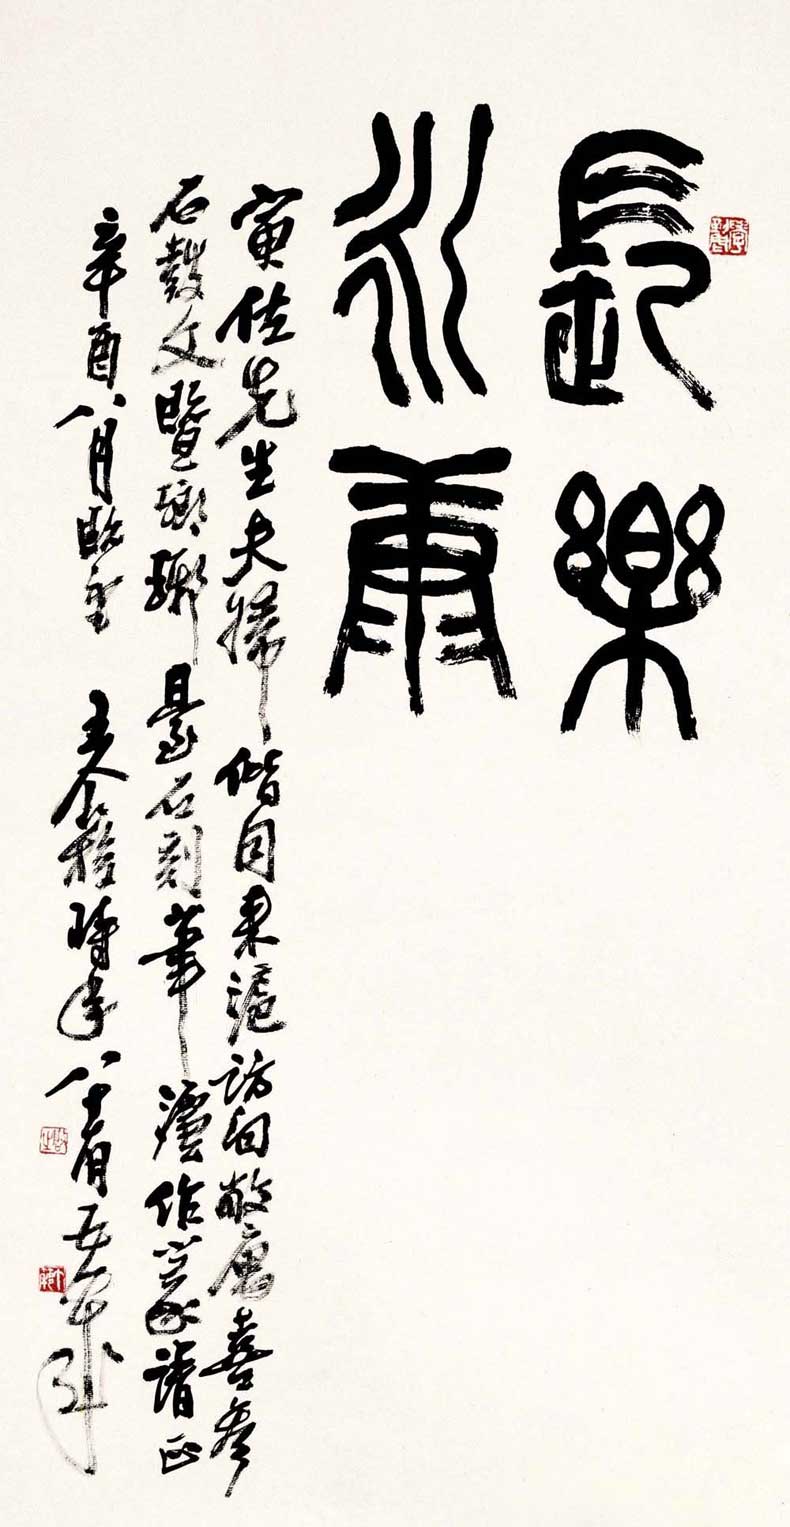 長樂
永康
寅佐先生夫婦偕同来滬訪問敝寓喜参
石鼓文暨瑯琊臺石刻筆灋作篆請正
辛酉八月既望 王个簃時年八十有五